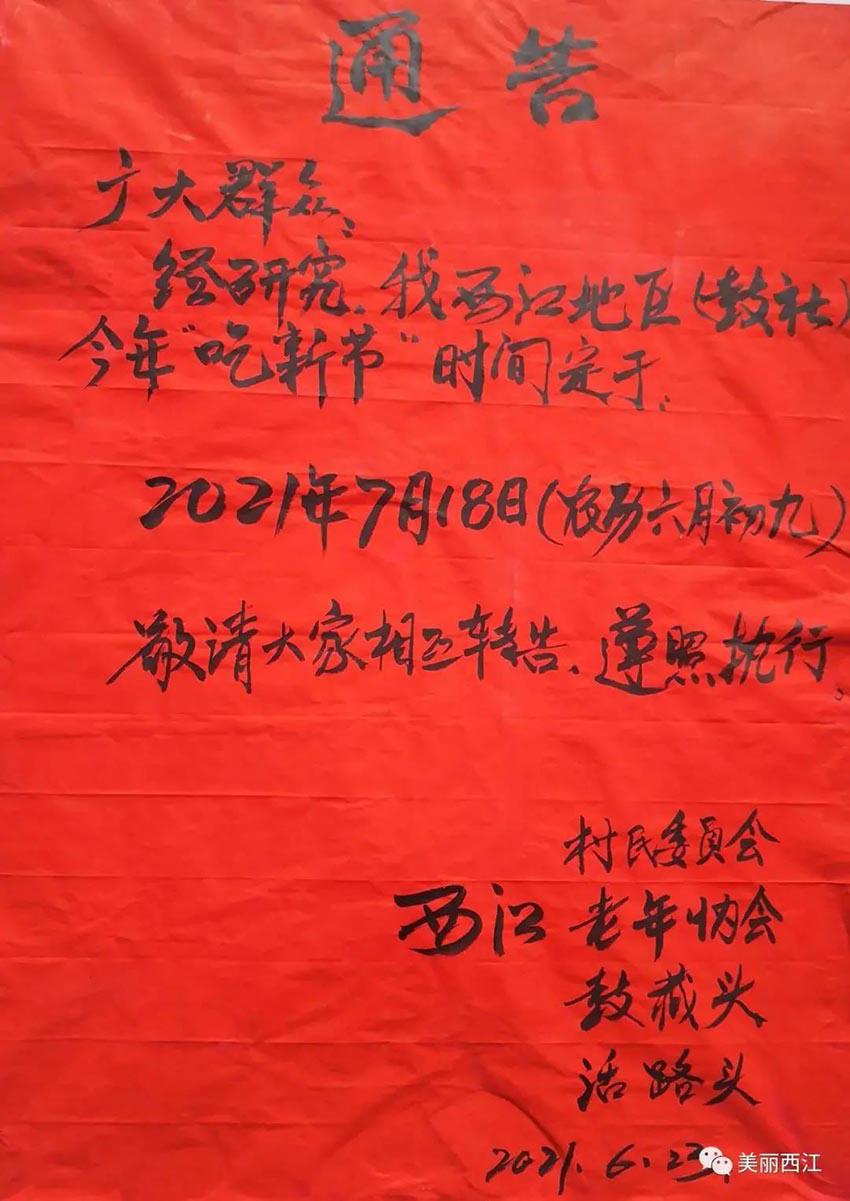 通告
广大群众：
经研究、我西江地区(鼓社)
今年“吃新节”时间定于：
2021年7月18日(农历六月初九)
敬请大家相互转告、遵照执行。
村民委员会
西江 老年协会
鼓藏头
活路头
2021.6.23.
美丽西江